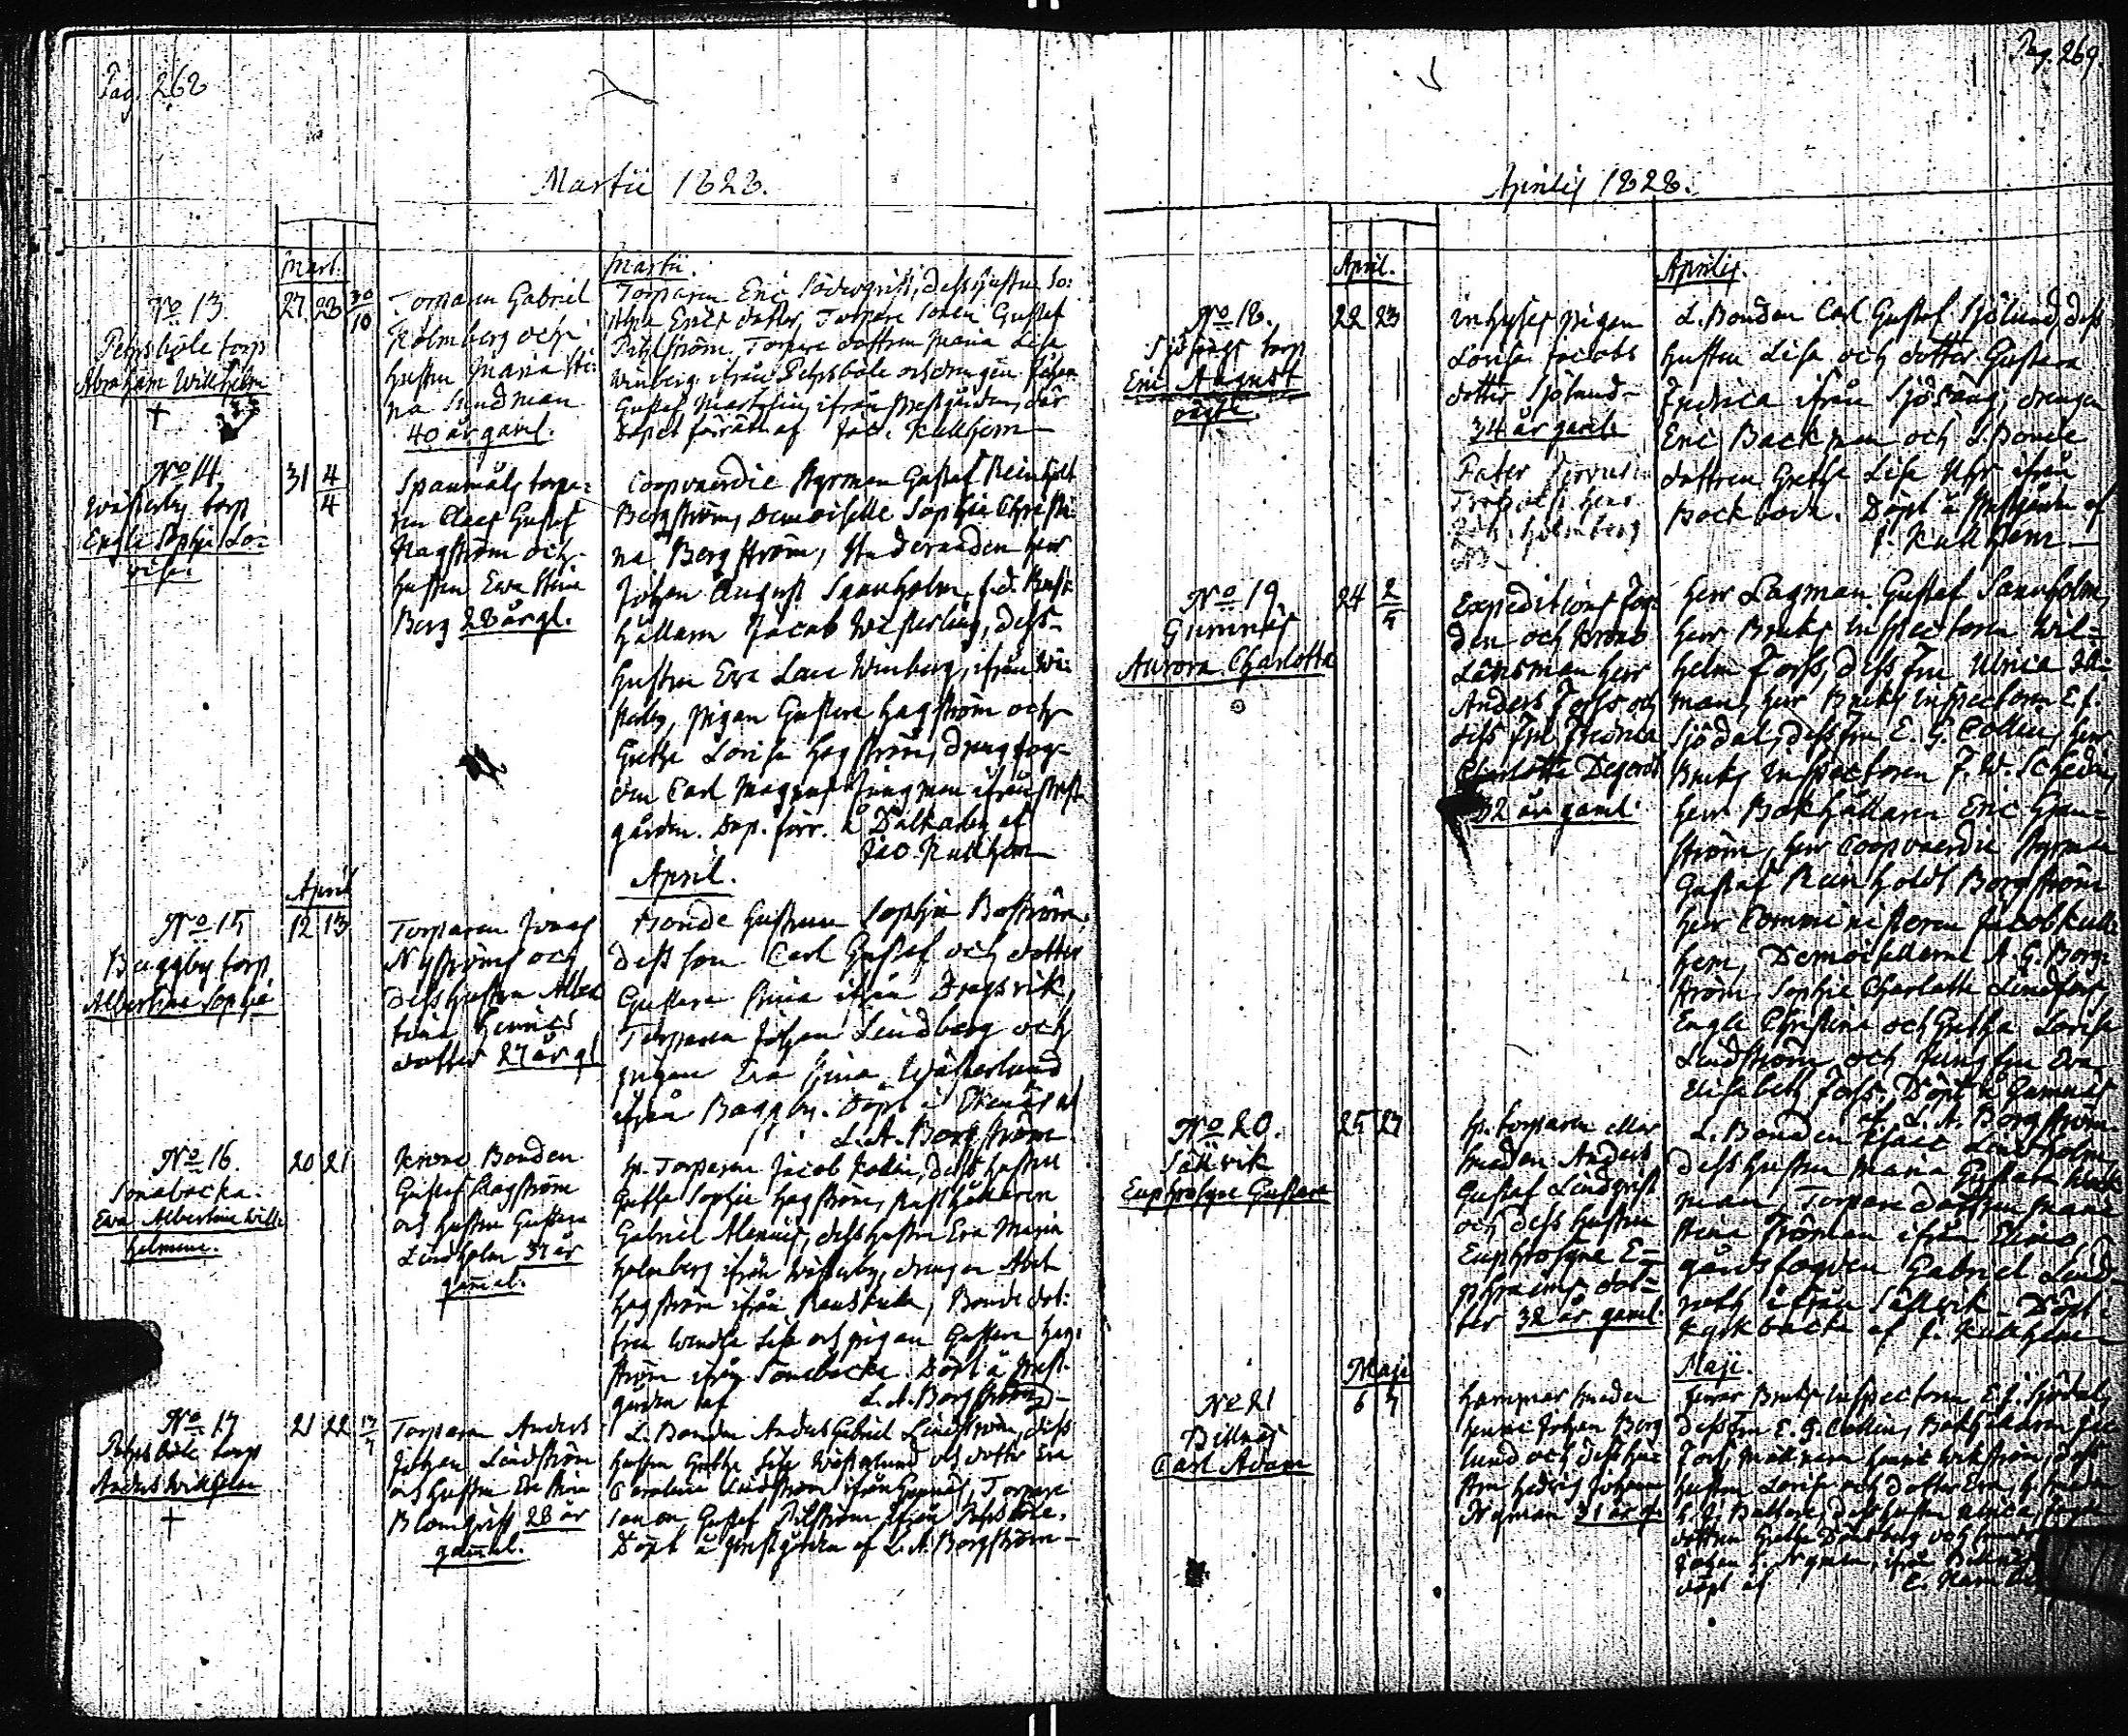 Pag. 268
Martii 1828.
Mart.
Martii.
No 13.
Pehrsböle torp
Abraham Willhelm
†
27 28 30/10
Torparen Gabriel
Holmberg och
hustru Maria Sti:
na Sundman
40 år gaml.
Torparen Eric Söderqvist, dess hustru So:
phia Ericsdotter, Torpare sonen Gustaf
Pihlström, Torpare dottren Maria Lisa
Winberg ifrån Pehrsböle och drengen Johan
Gustaf ifrån Prestgården, där
döpet förrät. af Jac. Kullhem
No 14.
Westerby torp
Engla Sophia Lo:
visa
31 4/4
Spanmåls torpa:
ren Claes Gustaf
Hagström och
hustru Eva Stina
Berg 28 år gl.
Coopvaerdie Styrman Gustaf Reinholt
Bergström, Demoiselle Sophia Christi:
na Bergström, Studeranden herr
Johan August Sannholm, f.d. Rust:
hållaren Jacob Westerling, dess
hustru Eva Lena Winberg, ifrån We:
sterby, pigan Gustava Hagström och
Gretha Lovisa Hagström, dreng fog:
den Carl Magnus Jungman ifrån Prest
gården. Döp. förr. å Dalkarby af
Jac. Kullhem
April
April.
No 15
Baggby torp
Albertina Sophia
12 13
Torparen Jonas
Nyström och
dess hustru Alber
tina Henrics
dotter 27 år gl
Bonde hustrun Sophia Boström,
dess son Carl Gustaf och dotter
Gustava Stina ifrån Dragsvik,
Torparen Johan Lindberg och
pigan Eva Stina Westerlund
ifrån Baggby. Döpt i Ekenäs af
L. A. Borgström
No 16.
Sonabacka.
Eva Albertina Will
helmina.
20 21
Krono Bonden
Gustaf Hagström
och hustru Gustava
Lindholm 37 år
gammal.
hr. Torparen Jacob Kolin, dess hustru
Gretha Sophia Hagström, Rusthållaren
Gabriel Alenius, dess hustru Eva Maria
Holmberg ifrån Westerby, drengen Abel
Hagström ifrån Rauskulla, Bonde dot:
tren Wendla Lisa och pigan Gustava Hag:
ström ifrån Sonabacka. Döpt å Prest
gården af L. A. Borgström
No 17
Pehrsböle torp
Anders Willhelm
†
21 22 17/7
Torparen Anders
Johan Lindström
och hustru Eva Stina
Blomqvist 28 år
gammal.
L. Bonden Anders Gabriel Lindström, dess
hustru Gretha Lisa Westerlund och dotter Eva
Carolina Lindström ifrån Gumnäs, Torpare
sonen Gustaf Pihlström ifrån Pehrsböle.
Döpt å Prestgården af L. A. Borgström
Pag. 269.
Aprilis 1828.
April.
Aprilis.
No 18.
Sjösängs torp
Eric August
oägta.
22 23
Inhyses pigan
Lovisa Jacobs
dotter Sjölund
34 år gaml.
Pater
L. Bonden Carl Gustaf Sjölund, dess
hustru Lisa och dotter Gustava
Fredrica ifrån Sjösäng, drengen
Eric Backman och L. Bonde
dottren Gretha Lisa Uhr ifrån
Backboda. Döpt å Prestgården af
J. Kullhem
No 19
Gumnäs
Aurora Charlotta
24 2/5
Expeditions Fog:
den och Krono
Länsman Herr
Anders Forss och
dess Fru Fredrica
Charlotta Degerdt
32 år gaml.
Herr Lagman Gustaf Sannholm,
Herr Bruks Inspectoren Wil=
helm Forss, dess Fru Ulrica
man, herr Bruks Inspectoren E. J.
Sjödal, dess Fru E. G. Collin, herr
Bruks Inspectoren J. W. Schedin,
herr Bokhållaren Eric Gran=
ström, herr Coopvaerdie Styrman
Gustaf Reinholdt Borgström
herr Comministeren Jacob Kull:
hem, Demoisellerne A. G. Borg:
ström, Sophia Charlotta Lindfors,
Engla Christina och Gretha Lovisa
Lindström och Jungfru Eva
Elisabeth Forss. Döpt å Gumnäs
af L. A. Borgström
No 20.
Sållvik
Euphrosyne Gustava
25 27
hr. torparen eller
smeden Anders
Gustaf Lindqvist
och dess hustru
Euphrosyne E=
phraims dot=
ter 32 år gaml.
L. Bonden Isaac Lindholm,
dess hustru Maria Gustava
man, Torpare dottren Maria
Stina Froman ifrån
gårdsfogden Gabriel Lind
roth ifrån Sållvik. Döpt i
Kyrkbacka af J. Kullhem
Maji
Maji.
No 21
Billnäs
Carl Adam
6 7
Hammar smeden
Henric Johan Berg
lund och dess hu:
stru Hedvig Johanna
Nyman 31 år g.
Herrar Bruks Inspectoren E. J. Sjödal,
dess Fru E. G. Collin, Bokhållaren
Forss, Henric Wikström, dess
hustru Lovisa och dotter Eva,
dess hustru Ulrica,
dottren Gretha och
Johan H. Nyman, ifrån Billnäs
döpt af